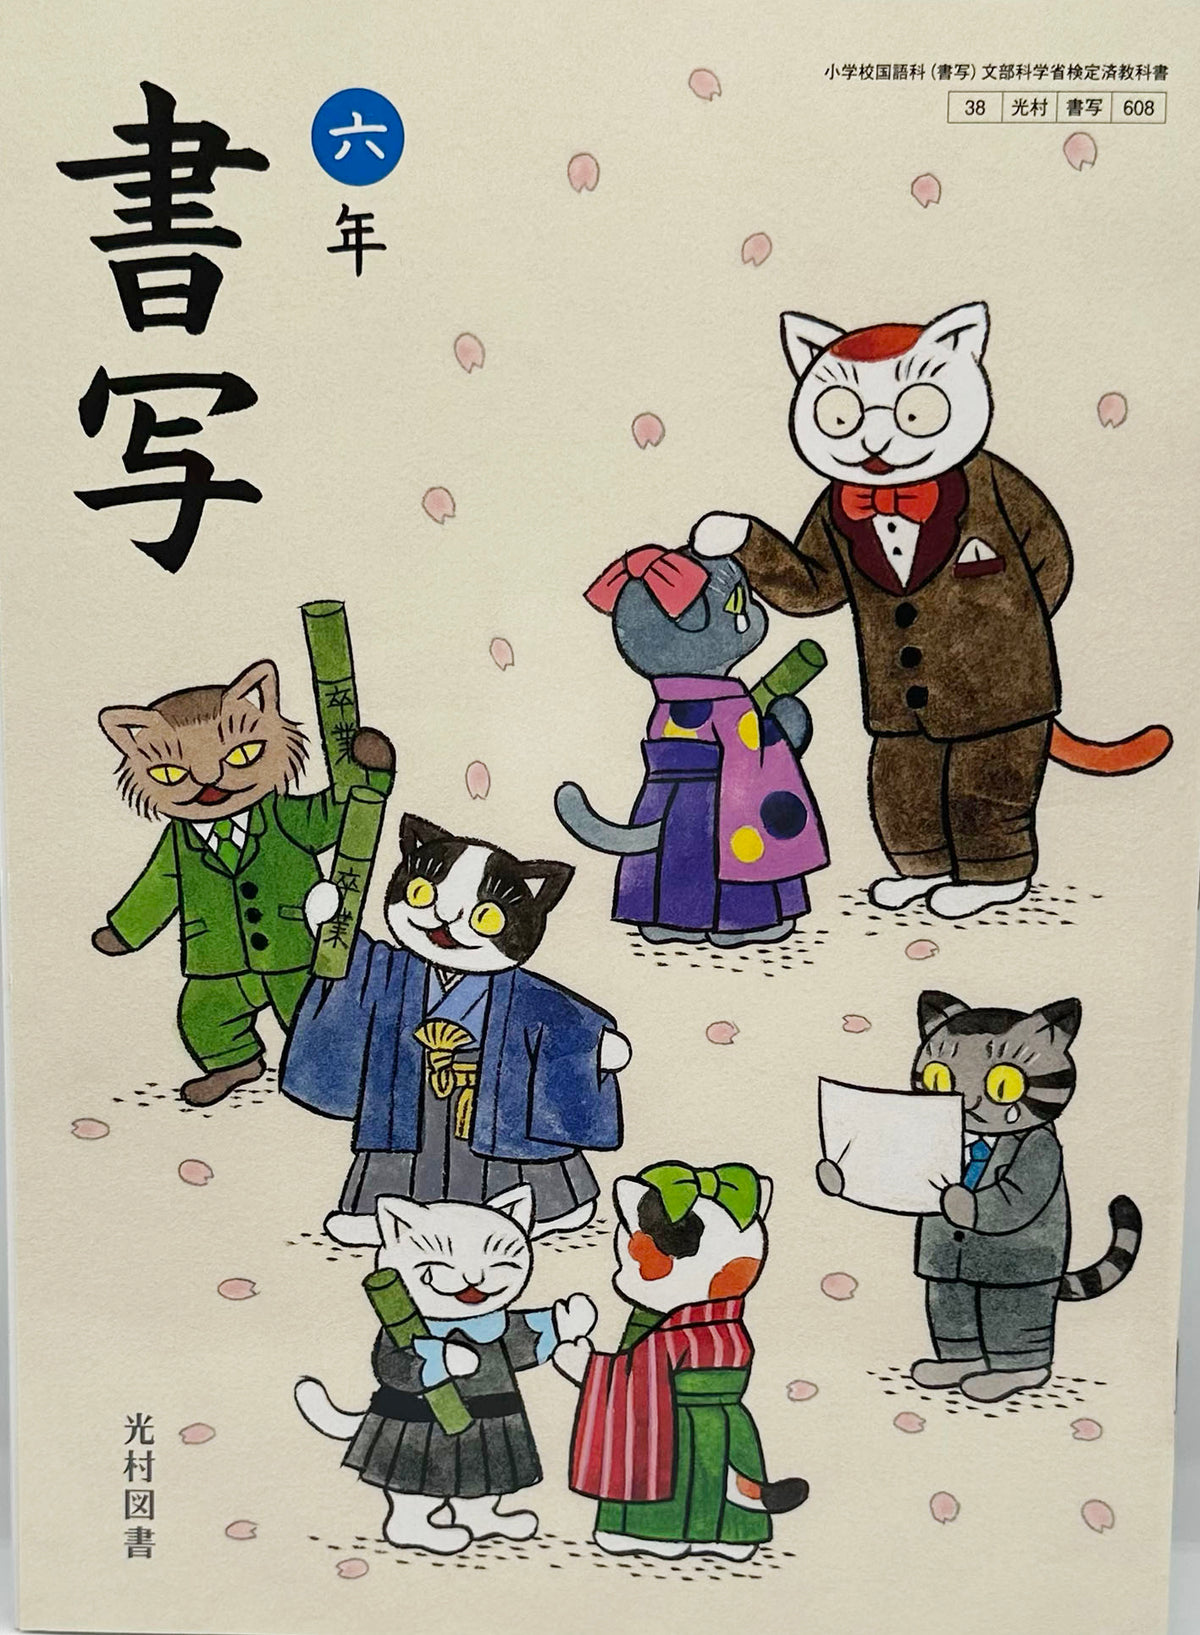 小学校国語科（書写）文部科学省検定済教科書
38 光村 書写 608
六年
書写
卒業
卒業
光村図書